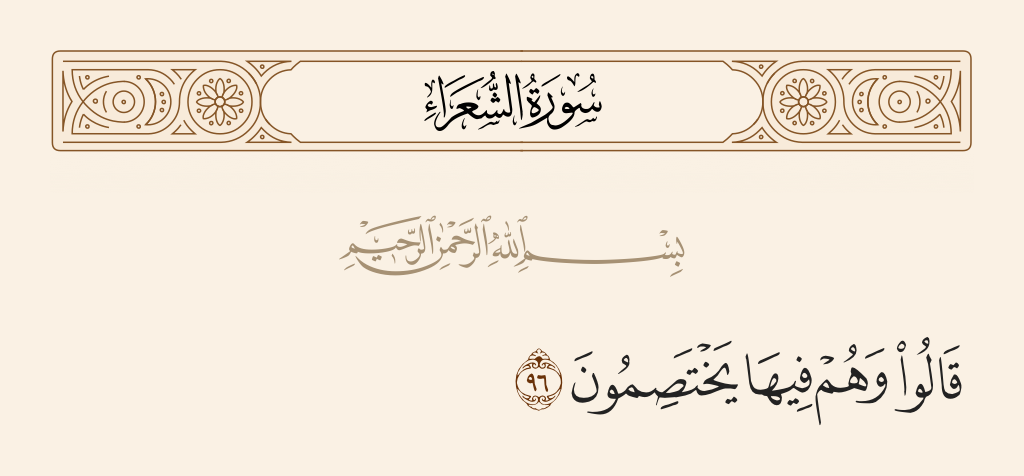 سُورَةُ الشُّعَرَاءِ
بِسْمِ ٱللَّهِ ٱلرَّحْمَٰنِ ٱلرَّحِيمِ
قَالُوا۟ وَهُمْ فِيهَا يَخْتَصِمُونَ ٩٦